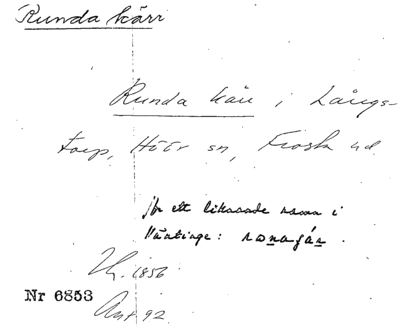 Runda kärr
Runda kärr i Långs-
torp, Höör sn, Frosta hd
jfr ett liknande namn i
Väätinge:
Uh. 1856
Nr 6853
Ant 92